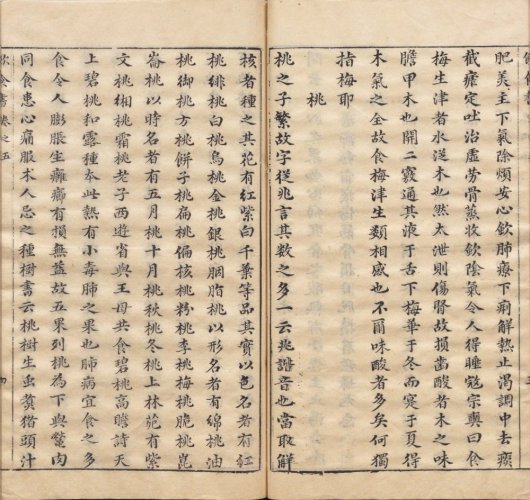 肥美主下氣除煩安心飲肺療下痢解熱止渴調中去痰
截瘧定吐治虛勞骨蒸收飲陰氣令人得睡寇宗奭曰食
梅生津者水逆木也然太泄則傷腎故損齒酸者木之味
膽甲木也開二竅通其液于舌下梅華于冬而實于夏得
木氣之全故食梅津生類相感也不爾味酸者多矣何獨
指梅耶
桃
桃之子繁故字從兆言其數之多一云兆諧音也當取解
核者種之其花有紅紫白千葉等品其實以色名者有紅
桃緋桃白桃烏桃金桃銀桃胭脂桃以形名者有綿桃油
桃御桃方桃餅子桃扁桃偏核桃粉桃李桃梅桃脆桃崑
崙桃以時名者有五月桃十月桃秋桃冬桃上林苑有紫
文桃緗桃霜桃老子西遊省與王母共食碧桃高瞻詩天
上碧桃和露種本此熱有小毒肺之果也肺病宜食之多
食令人膨脹生癰癤有損無益故五果列桃為下與鱉肉
同食患心痛服术人忌之種樹書云桃樹生虫煑猪頭汁
飲食書卷之五